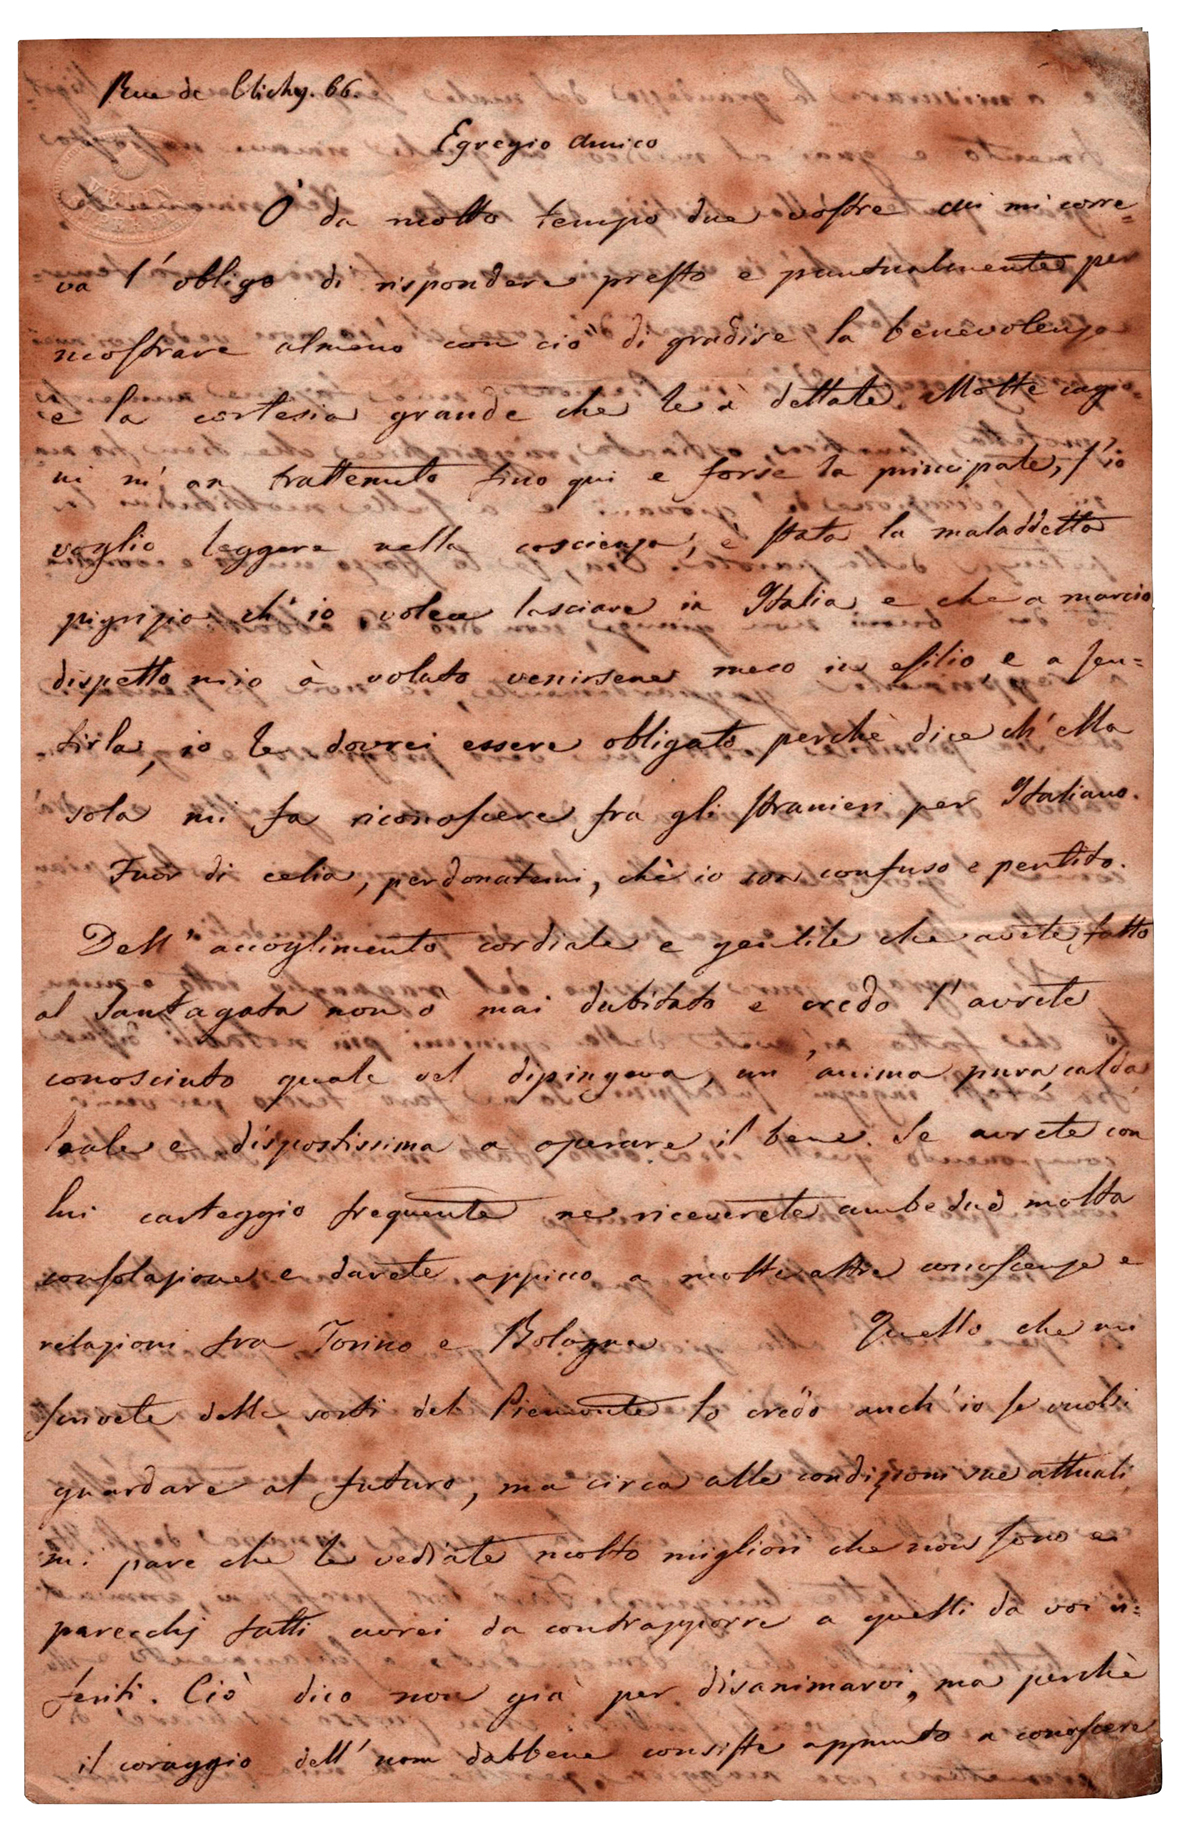 Rue de Clichy. 66.
Egregio Amico
Ò da molto tempo due vostre cui mi corre=
va l'obligo di rispondere presto e puntualmente per
mostrare almeno con ciò di gradire la benevolenza
e la cortesia grande che le à dettate. Molte cagio
ni m'àn trattenuto fino qui e forse la principale, s'io
voglio leggere nella coscienza, è stata la maladdetta
pigrizia ch'io volea lasciare in Italia e che a marcio
dispetto mio à voluto venirsene meco in esilio, e a sen=
tirla, io le dovrei essere obligato perchè dice ch'ella
sola mi fa riconoscere fra gli stranieri per Italiano.
Fuor di celia, perdonatemi, chè io son confuso e pentito.
Dell'accoglimento cordiale e gentile che avete fatto
al Santagata non ò mai dubitato e credo l'avrete
conosciuto quale vel dipingeva, un'anima pura, calda
leale e dispostissima a operare il bene. Se avrete con
lui carteggio frequente ne riceverete ambedue molta
consolazione e darete appicco a molte altre conoscenze e
relazioni fra Torino e Bologna Quello che mi
scrivete delle sorti del Piemonte lo credo anch'io se vuolsi
guardare al futuro, ma circa alle condizioni sue attuali
mi pare che le vediate molto migliori che non sono e
parecchj fatti avrei da contrapporre a quelli da voi ri=
feriti. Ciò dico non già per disanimarvi, ma perchè
il coraggio dell'uom dabbene consiste appunto a conoscere